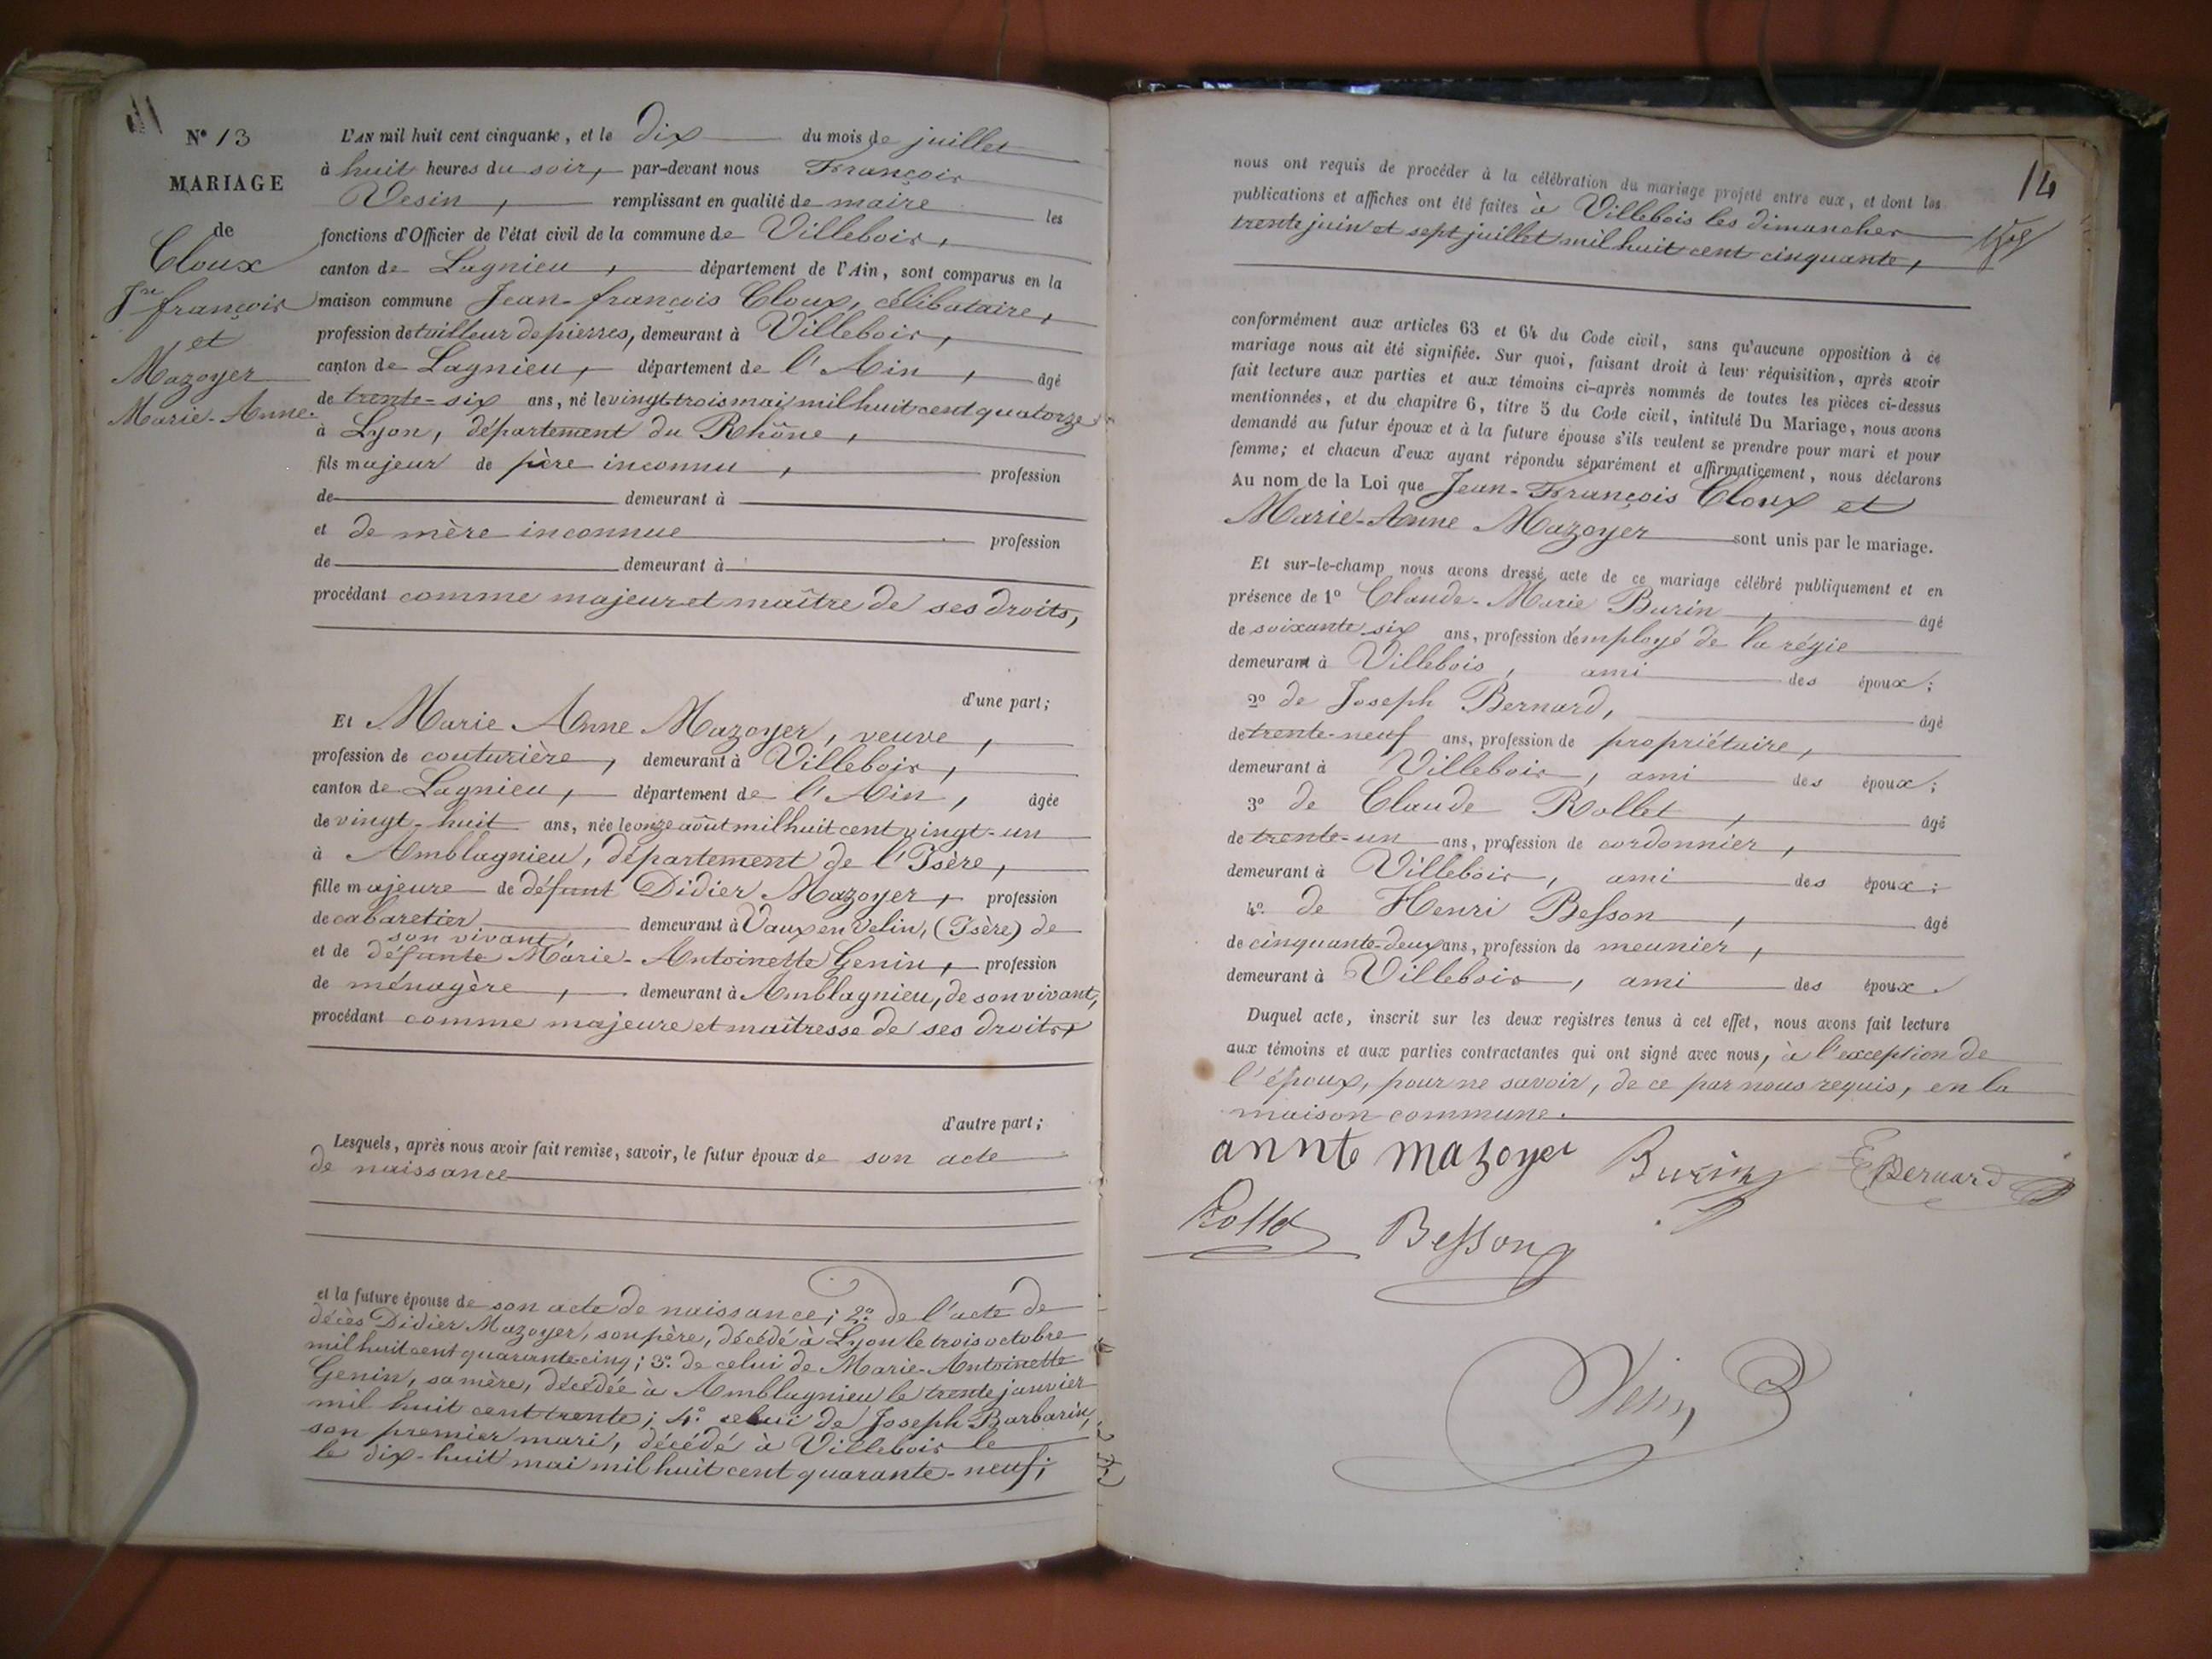 N° 13
MARIAGE
de
Cloux
Jn françois
et
Mazoyer
Marie-Anne.
L'AN mil huit cent cinquante, et le dix du mois de juillet
à huit heures du soir, par-devant nous François
Vesin, remplissant en qualité de maire les
fonctions d'Officier de l'état civil de la commune de Villebois,
canton de Lagnieu, département de l'Ain, sont comparus en la
maison commune Jean-françois Cloux, célibataire,
profession de tailleur de pierres, demeurant à Villebois,
canton de Lagnieu, département de l'Ain, âgé
de trente-six ans, né le vingt-trois mai mil huit cent quatorze
à Lyon, département du Rhône,
fils majeur de père inconnu, profession
de demeurant à
et de mère inconnue profession
de demeurant à
procédant comme majeur et maître de ses droits,
d'une part;
Et Marie Anne Mazoyer, veuve,
profession de couturière, demeurant à Villebois,
canton de Lagnieu, département de l'Ain, âgée
de vingt-huit ans, née le onze août mil huit cent vingt-un
à Amblagnieu, département de l'Isère,
fille majeure de défunt Didier Mazoyer, profession
de cabaretier demeurant à Vaux en Velin, (Isère) de
son vivant,
et de défunte Marie-Antoinette Genin, profession
de ménagère, demeurant à Amblagnieu, de son vivant,
procédant comme majeure et maîtresse de ses droits,
d'autre part;
Lesquels, après nous avoir fait remise, savoir, le futur époux de son acte
de naissance
et la future épouse de son acte de naissance; 2° de l'acte de
décès Didier Mazoyer, son père, décédé à Lyon le trois octobre
mil huit cent quarante-cinq; 3° de celui de Marie-Antoinette
Genin, sa mère, décédée à Amblagnieu le trente janvier
mil huit cent trente; 4° celui de Joseph Barbarin,
son premier mari, décédé à Villebois le
le dix-huit mai mil huit cent quarante-neuf;
14
nous ont requis de procéder à la célébration du mariage projeté entre eux, et dont les
publications et affiches ont été faites à Villebois les dimanches
trente juin et sept juillet mil huit cent cinquante,
conformément aux articles 63 et 64 du Code civil, sans qu'aucune opposition à ce
mariage nous ait été signifiée. Sur quoi, faisant droit à leur réquisition, après avoir
fait lecture aux parties et aux témoins ci-après nommés de toutes les pièces ci-dessus
mentionnées, et du chapitre 6, titre 5 du Code civil, intitulé Du Mariage, nous avons
demandé au futur époux et à la future épouse s'ils veulent se prendre pour mari et pour
femme; et chacun d'eux ayant répondu séparément et affirmativement, nous déclarons
Au nom de la Loi que Jean-François Cloux et
Marie-Anne Mazoyer sont unis par le mariage.
Et sur-le-champ nous avons dressé acte de ce mariage célébré publiquement et en
présence de 1° Claude-Marie Burin, âgé
de soixante six ans, profession d'employé de la régie
demeurant à Villebois, ami des époux;
2° de Joseph Bernard, âgé
de trente-neuf ans, profession de propriétaire,
demeurant à Villebois, ami des époux;
3° de Claude Rollet, âgé
de trente-un ans, profession de cordonnier,
demeurant à Villebois, ami des époux;
4° de Henri Besson, âgé
de cinquante-deux ans, profession de meunier,
demeurant à Villebois, ami des époux.
Duquel acte, inscrit sur les deux registres tenus à cet effet, nous avons fait lecture
aux témoins et aux parties contractantes qui ont signé avec nous, à l'exception de
l'époux, pour ne savoir, de ce par nous requis, en la
maison commune.
annte mazoyer Burin Bernard
Rollet Besson
Vesin